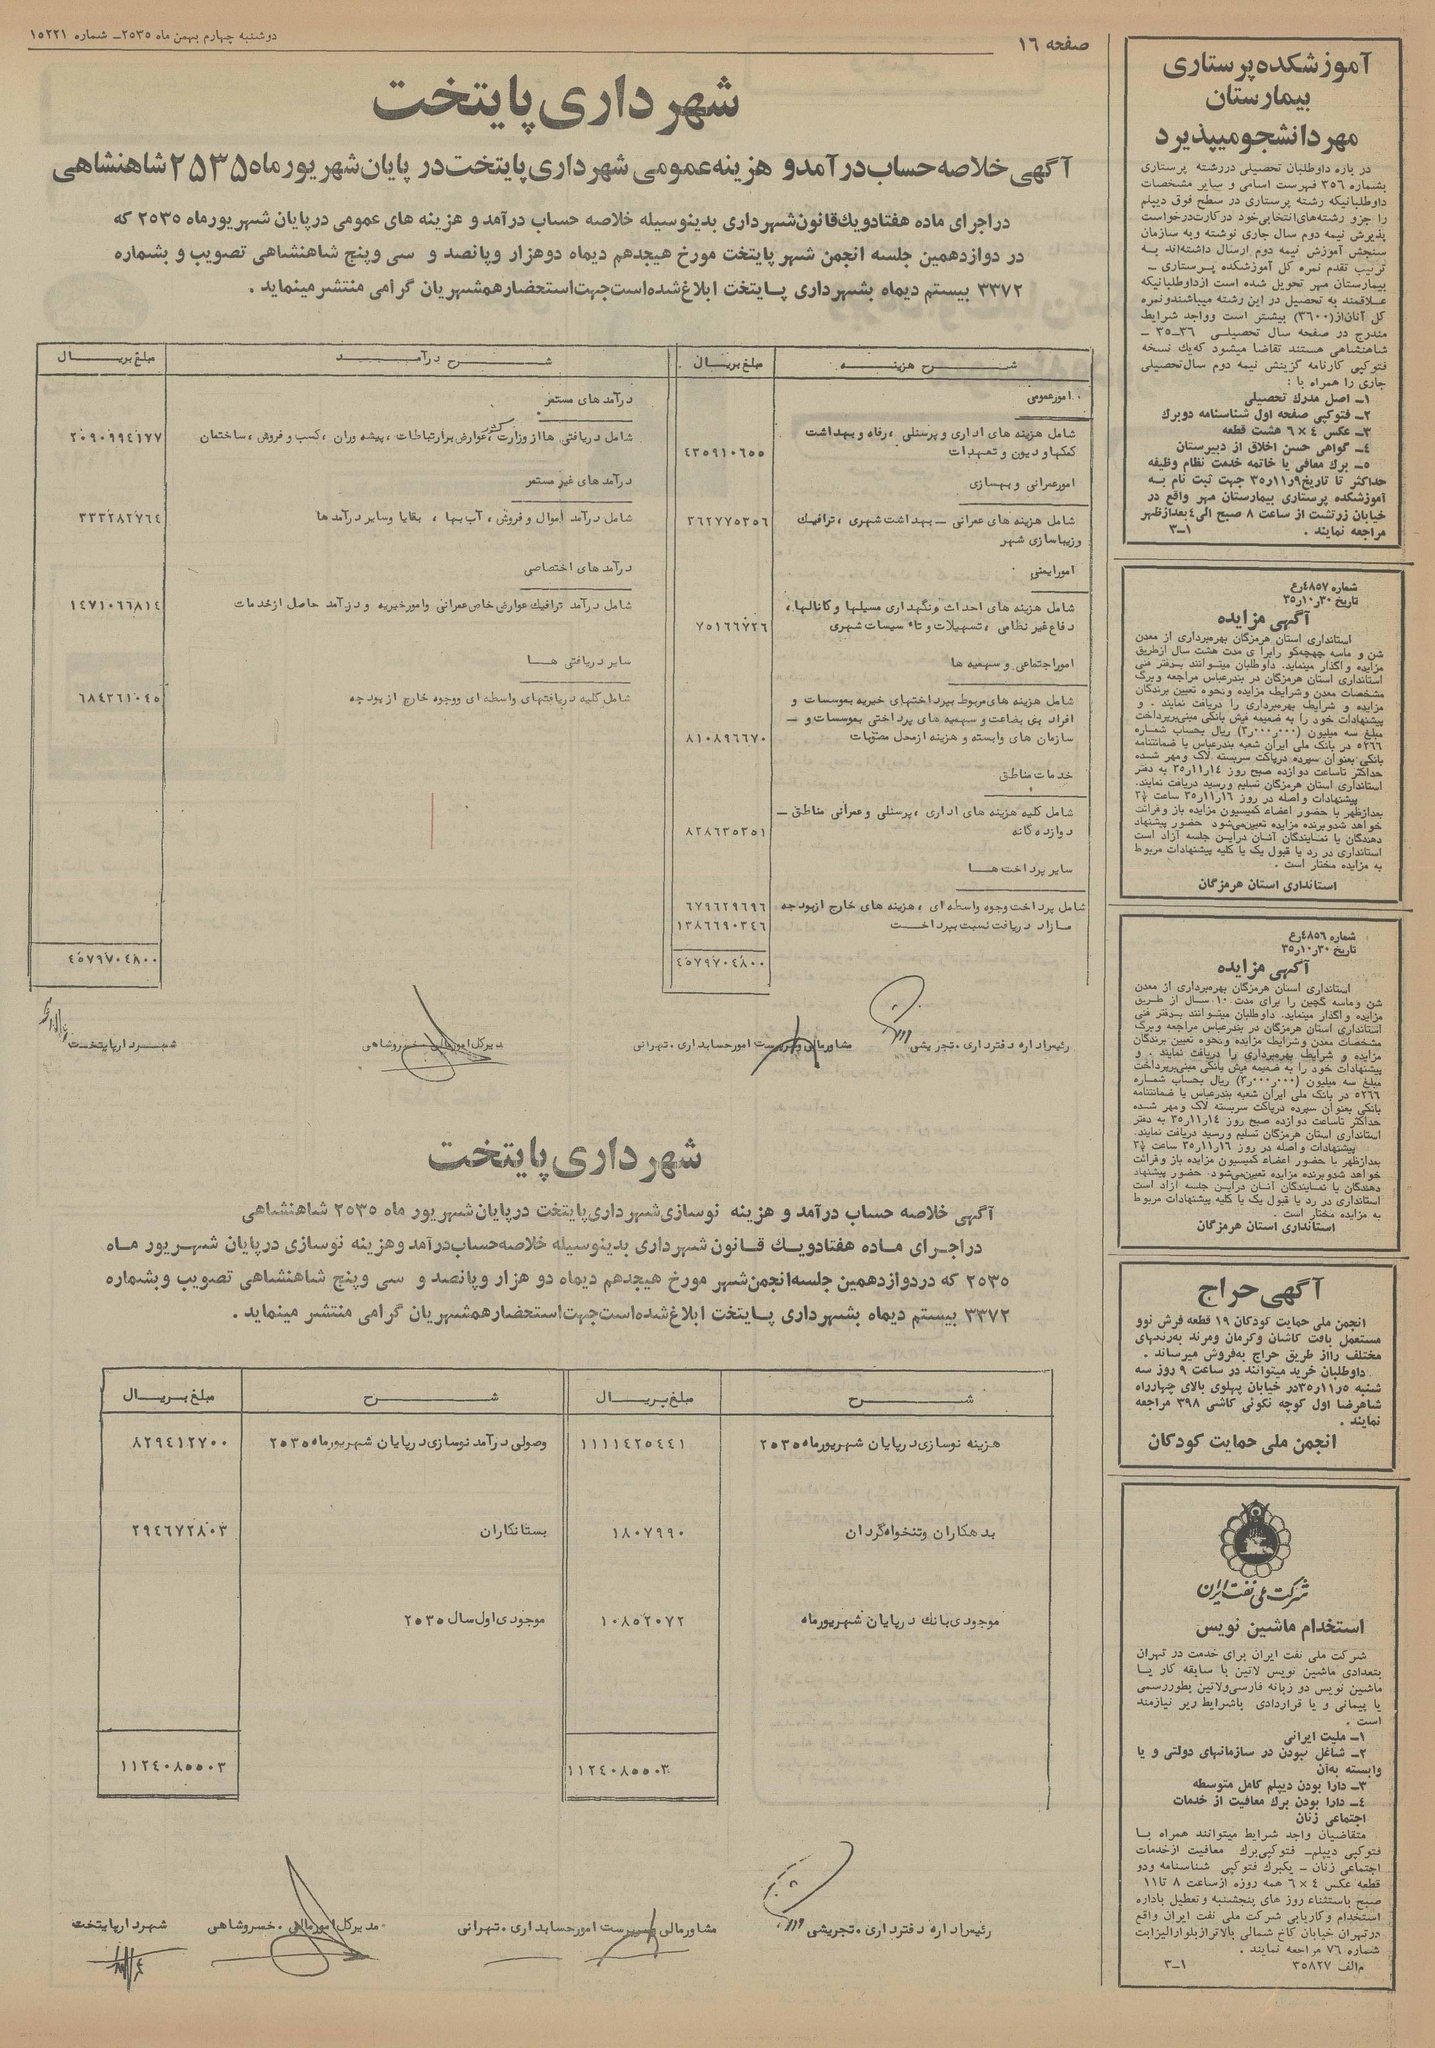 صفحه ۱۶
دوشنبه چهارم بهمن ماه ۲۵۳۵ـ شماره ۱۵۲۲۱
شهرداری پایتخت
آگهی خلاصه حساب درآمدو هزینه عمومی شهرداری پایتخت در پایان شهریورماه ۲۵۳۵ شاهنشاهی
در اجرای ماده هفتادویك قانون شهرداری بدینوسیله خلاصه حساب درآمد و هزینه های عمومی در پایان شهریورماه ۲۵۳۵ که
در دوازدهمین جلسه انجمن شهر پایتخت مورخ هیجدهم دیماه دوهزار وپانصد و سی وپنج شاهنشاهی تصویب و بشماره
۳۳۷۲ بیستم دیماه بشهرداری پایتخت ابلاغ شده است جهت استحضار همشهریان گرامی منتشر مینماید .
شرح هزینه
مبلغ بریال
شرح درآمد
مبلغ بریال
۰ امور عمومی
شامل هزینه های اداری و پرسنلی ، رفاه و بهداشت
کمکها و دیون و تعهدات
۴۳۵۹۱۰۶۵۵
امور عمرانی و بهسازی
شامل هزینه های عمرانی ـ بهداشت شهری ، ترافیك
وزیباسازی شهر
۳۶۲۷۷۵۳۵۶
امور ایمنی
شامل هزینه های احداث و نگهداری مسیلها و کانالها ،
دفاع غیر نظامی ، تسهیلات و تاء سیسات شهری
۷۵۱۶۶۷۲۶
امور اجتماعی و سهمیه ها
شامل هزینه های مربوط بپرداختهای خیریه بموسسات و
افراد بی بضاعت و سهمیه های پرداختی بموسسات و ـ
سازمان های وابسته و هزینه از محل مصوبات
۸۱۰۸۹۶۶۷۰
خدمات مناطق
شامل کلیه هزینه های اداری ، پرسنلی و عمرانی مناطق ـ
دوازده گانه
۸۲۸۶۳۵۳۵۱
سایر پرداخت ها
شامل پرداخت وجوه واسطه ای ، هزینه های خارج از بودجه
۶۷۹۶۲۹۶۹۶
مازاد دریافت نسبت بپرداخت
۱۳۸۶۶۹۰۳۴۶
۴۵۷۹۷۰۴۸۰۰
درآمد های مستمر
شامل دریافتی ها از وزارت کشور ، عوارض بر ارتباطات ، پیشه وران ، کسب و فروش ، ساختمان
۲۰۹۰۹۹۴۱۷۷
درآمد های غیر مستمر
شامل درآمد اموال و فروش ، آب بها ، بقایا و سایر درآمد ها
۳۳۳۲۸۲۷۶۴
درآمد های اختصاصی
شامل درآمد ترافیك عوارض خاص عمرانی و امور خیریه و درآمد حاصل از خدمات
۱۴۷۱۰۶۶۸۱۴
سایر دریافتی ها
شامل کلیه دریافتهای واسطه ای ووجوه خارج از بودجه
۶۸۴۳۶۱۰۴۵
۴۵۷۹۷۰۴۸۰۰
رئیس اداره دفترداری . تجریشی
مشاور مالی و سرپرست امور حسابداری . تهرانی
مدیر کل امور مالی . خسروشاهی
شهردار پایتخت
شهرداری پایتخت
آگهی خلاصه حساب درآمد و هزینه نوسازی شهرداری پایتخت در پایان شهریور ماه ۲۵۳۵ شاهنشاهی
در اجرای ماده هفتادویك قانون شهرداری بدینوسیله خلاصه حساب درآمد وهزینه نوسازی در پایان شهریور ماه
۲۵۳۵ که در دوازدهمین جلسه انجمن شهر مورخ هیجدهم دیماه دو هزار وپانصد و سی وپنج شاهنشاهی تصویب وبشماره
۳۳۷۲ بیستم دیماه بشهرداری پایتخت ابلاغ شده است جهت استحضار همشهریان گرامی منتشر مینماید .
شرح
مبلغ بریال
شرح
مبلغ بریال
هزینه نوسازی در پایان شهریور ماه ۲۵۳۵
۱۱۱۱۴۲۵۴۴۱
وصولی درآمد نوسازی در پایان شهریور ماه ۲۵۳۵
۸۲۹۴۱۲۷۰۰
بدهکاران و تنخواه گردان
۱۸۰۷۹۹۰
بستانکاران
۲۹۴۶۷۲۸۰۳
موجودی بانك در پایان شهریور ماه
۱۰۸۵۲۰۷۲
موجودی اول سال ۲۵۳۵
۱۱۲۴۰۸۵۵۰۳
۱۱۲۴۰۸۵۵۰۳
رئیس اداره دفترداری . تجریشی
مشاور مالی و سرپرست امور حسابداری . تهرانی
مدیر کل امور مالی . خسروشاهی
شهردار پایتخت
آموزشکده پرستاری
بیمارستان
مهر دانشجو میپذیرد
در باره داوطلبان تحصیلی در رشته پرستاری
بشماره ۳۵۶ فهرست اسامی و سایر مشخصات
داوطلبانیکه رشته پرستاری در سطح فوق دیپلم
را جزو رشته‌های انتخابی خود در کارت درخواست
پذیرش نیمه دوم سال جاری نوشته وبه سازمان
سنجش آموزش نیمه دوم ارسال داشته‌اند به
ترتیب تقدم نمره کل آموزشکده پرستاری ـ
بیمارستان مهر تحویل شده است از داوطلبانیکه
علاقمند به تحصیل در این رشته میباشند و نمره
کل آنان از (۳۶۰۰) بیشتر است وواجد شرایط
مندرج در صفحه سال تحصیلی ۳۶ـ۳۵ ـ
شاهنشاهی هستند تقاضا میشود که یك نسخه
فتوکپی کارنامه گزینش نیمه دوم سال تحصیلی
جاری را همراه با :
۱ـ اصل مدرك تحصیلی
۲ـ فتوکپی صفحه اول شناسنامه دوبرك
۳ـ عکس ۴×۶ هشت قطعه
۴ـ گواهی حسن اخلاق از دبیرستان
۵ـ برك معافی یا خاتمه خدمت نظام وظیفه
حداکثر تا تاریخ ۹ر۱۱ر۳۵ جهت ثبت نام به
آموزشکده پرستاری بیمارستان مهر واقع در
خیابان زرتشت از ساعت ۸ صبح الی ۴ بعدازظهر
مراجعه نمایند . ۱ـ۳
شماره ۴۸۵۷رع
تاریخ ۳۰ر۱۰ر۳۵
آگهی مزایده
استانداری استان هرمزگان بهره‌برداری از معدن
شن و ماسه چهچکو رابرا ی مدت هشت سال ازطریق
مزایده واگذار مینماید. داوطلبان میتوانند بدفتر فنی
استانداری استان هرمزگان در بندرعباس مراجعه وبرگ
مشخصات معدن وشرایط مزایده ونحوه تعیین برندگان
مزایده و شرایط بهره‌برداری را دریافت نمایند . و
پیشنهادات خود را به ضمیمه فیش بانکی مبنی‌برپرداخت
مبلغ سه میلیون (۰۰۰ر۰۰۰ر۳) ریال بحساب شماره
۵۲۶۶ در بانک ملی ایران شعبه بندرعباس یا ضمانتنامه
بانکی بعنوان سپرده درپاکت سربسته لاک ومهر شده
حداکثر تاساعت دوازده صبح روز ۱۴ر۱۱ر۳۵ به دفتر
استانداری استان هرمزگان تسلیم ورسید دریافت نمایند.
پیشنهادات واصله در روز ۱۶ر۱۱ر۳۵ ساعت
بعدازظهر با حضور اعضاء کمیسیون مزایده باز وقرائت
خواهد شدوبرنده مزایده تعیین‌می‌شود حضور پیشنهاد
دهندگان یا نمایندگان آنان دراین جلسه آزاد است
استانداری در رد یا قبول یک یا کلیه پیشنهادات مربوط
به مزایده مختار است .
استانداری استان هرمزگان
شماره ۴۸۵۶رع
تاریخ ۳۰ر۱۰ر۳۵
آگهی مزایده
استانداری استان هرمزگان بهره‌برداری از معدن
شن وماسه گچین را برای مدت ۱۰ سال از طریق
مزایده واگذار مینماید. داوطلبان میتوانند بدفتر فنی
استانداری استان هرمزگان در بندرعباس مراجعه وبرگ
مشخصات معدن وشرایط مزایده ونحوه تعیین برندگان
مزایده و شرایط بهره‌برداری را دریافت نمایند . و
پیشنهادات خود را به ضمیمه فیش بانکی مبنی‌برپرداخت
مبلغ سه میلیون (۰۰۰ر۰۰۰ر۳) ریال بحساب شماره
۵۲۶۶ در بانک ملی ایران شعبه بندرعباس یا ضمانتنامه
بانکی بعنوان سپرده درپاکت سربسته لاک ومهر شده
حداکثر تاساعت دوازده صبح روز ۱۴ر۱۱ر۳۵ به دفتر
استانداری استان هرمزگان تسلیم ورسید دریافت نمایند.
پیشنهادات واصله در روز ۱۶ر۱۱ر۳۵ ساعت
بعدازظهر با حضور اعضاء کمیسیون مزایده باز وقرائت
خواهد شدوبرنده مزایده تعیین‌می‌شود. حضور پیشنهاد
دهندگان یا نمایندگان آنان دراین جلسه آزاد است
استانداری در رد یا قبول یک یا کلیه پیشنهادات مربوط
به مزایده مختار است .
استانداری استان هرمزگان
آگهی حراج
انجمن ملی حمایت کودکان ۱۹ قطعه فرش نوو
مستعمل بافت کاشان وکرمان ومرند به‌رنگهای
مختلف رااز طریق حراج به‌فروش میرساند .
داوطلبان خرید میتوانند در ساعت ۹ روز سه
شنبه ۵ر۱۱ر۳۵در خیابان پهلوی بالای چهارراه
شاهرضا اول کوچه نکوئی کاشی ۳۹۸ مراجعه
نمایند .
انجمن ملی حمایت کودکان
شرکت ملی نفت ایران
استخدام ماشین نویس
شرکت ملی نفت ایران برای خدمت در تهران
بتعدادی ماشین نویس لاتین با سابقه کار یا
ماشین نویس دو زبانه فارسی‌ولاتین بطوررسمی
یا پیمانی و یا قراردادی باشرایط زیر نیازمند
است .
۱ـ ملیت ایرانی
۲ـ شاغل نبودن در سازمانهای دولتی و یا
وابسته به‌آن
۳ـ دارا بودن دیپلم کامل متوسطه
۴ـ دارا بودن برك معافیت از خدمات
اجتماعی زنان
متقاضیان واجد شرایط میتوانند همراه با
فتوکپی دیپلم‌ـ فتوکپی‌برك معافیت ازخدمات
اجتماعی زنان ـ یکبرك فتوکپی شناسنامه ودو
قطعه عکس ۴×۶ همه روزه ازساعت ۸ تا۱۱
صبح باستثناء روز های پنجشنبه وتعطیل باداره
استخدام وکاریابی شرکت ملی نفت ایران واقع
درتهران خیابان کاخ شمالی بالاترازبلوارالیزابت
شماره ۷۶ مراجعه نمایند .
م‌الف ۳۵۸۲۷ ۱ـ۳